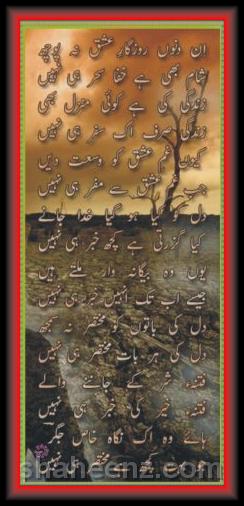 ان دنوں روزگارِ عشق نہ پوچھ
شام بھی ہے خفا سحر ہی نہیں
زندگی کی ہے کوئی منزل بھی
زندگی صرف اک سفر ہی نہیں
کیوں غمِ عشق کو وسعت دیں
جب غمِ عشق سے مفر ہی نہیں
دل کو کیا ہو گیا خدا جانے
کیا گزرتی ہے کچھ خبر ہی نہیں
یوں وہ بیگانہ وار ملتے ہیں
جیسے اب تک انہیں خبر ہی نہیں
دل کی باتوں کو مختصر نہ سمجھ
دل کی ہر بات مختصر ہی نہیں
فتنۂ شر کے جاننے والے
فتنۂ خیر کی خبر ہی نہیں
ہائے وہ اک نگاہ خاص جگر
جو بہت کچھ ہے مختصر ہی نہیں
shaheenz.com